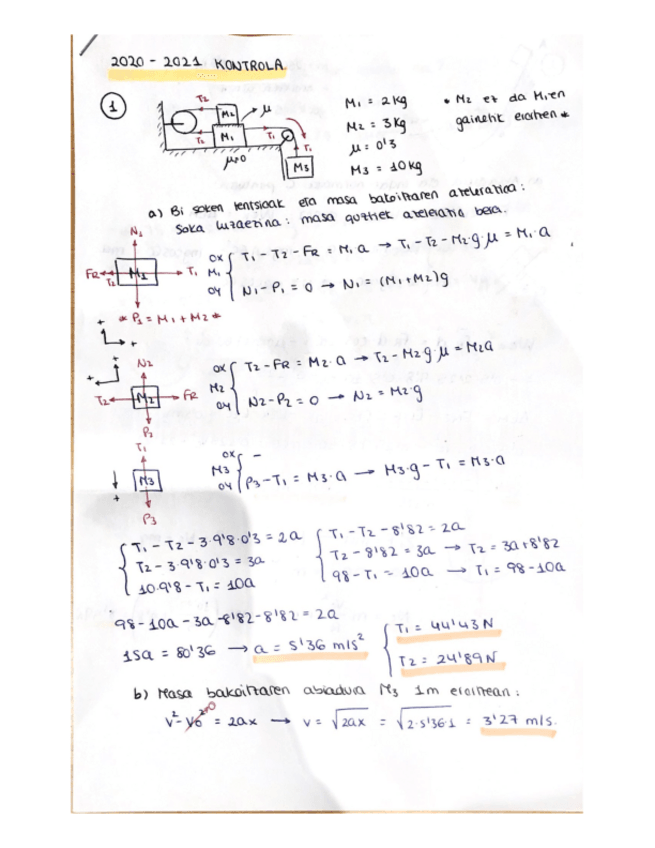 2020 - 2021 KONTROLA.
1
T2
M2
μ
M1
T2
T1
T1
μ=0
M3
M1 = 2kg
M2 = 3kg
μ = 0'3
M3 = 10kg
* M2 ez da M1en
gainetik erortzen *
a) Bi soken tentsioak eta masa bakoitzaren azelerazioa:
Soka luzaezina: masa guztiek azelerazio bera.
N1
FR
T2
M1
T1
* P1 = M1 + M2 *
OX
M1
OY
T1 - T2 - FR = M1 a → T1 - T2 - M2·g·μ = M1·a
N1 - P1 = 0 → N1 = (M1+M2)g
N2
T2
M2
FR
P2
OX
M2
OY
T2 - FR = M2·a → T2 - M2g·μ = M2a
N2 - P2 = 0 → N2 = M2·g
T1
M3
P3
OX
M3
OY
-
P3 - T1 = M3·a → M3·g - T1 = M3·a
T1 - T2 - 3·9'8·0'3 = 2a
T2 - 3·9'8·0'3 = 3a
10·9'8 - T1 = 10a
T1 - T2 - 8'82 = 2a
T2 - 8'82 = 3a → T2 = 3a+8'82
98 - T1 = 10a → T1 = 98 - 10a
98 - 10a - 3a - 8'82 - 8'82 = 2a
15a = 80'36 → a = 5'36 m/s²
T1 = 44'43 N
T2 = 24'89 N
b) Masa bakoitzaren abiadura M3 1m eroritzean:
v² - v0² = 2ax → v = √2ax = √2·5'36·1 = 3'27 m/s.